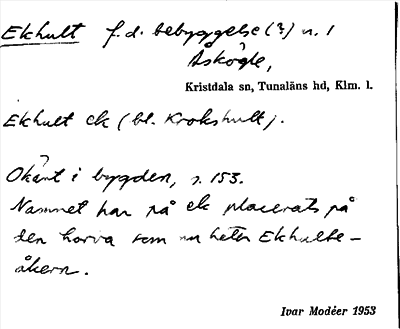 Ekhult f.d. bebyggelse (?) n. 1
Åskögle,
Kristdala sn, Tunaläns hd, Klm. l.
Ekhult ek (bl. Krokshult).
Okänt i bygden, s. 153.
Namnet har på ek placerats på
den horva som nu heter Ekhulte-
åkern.
Ivar Modéer 1953